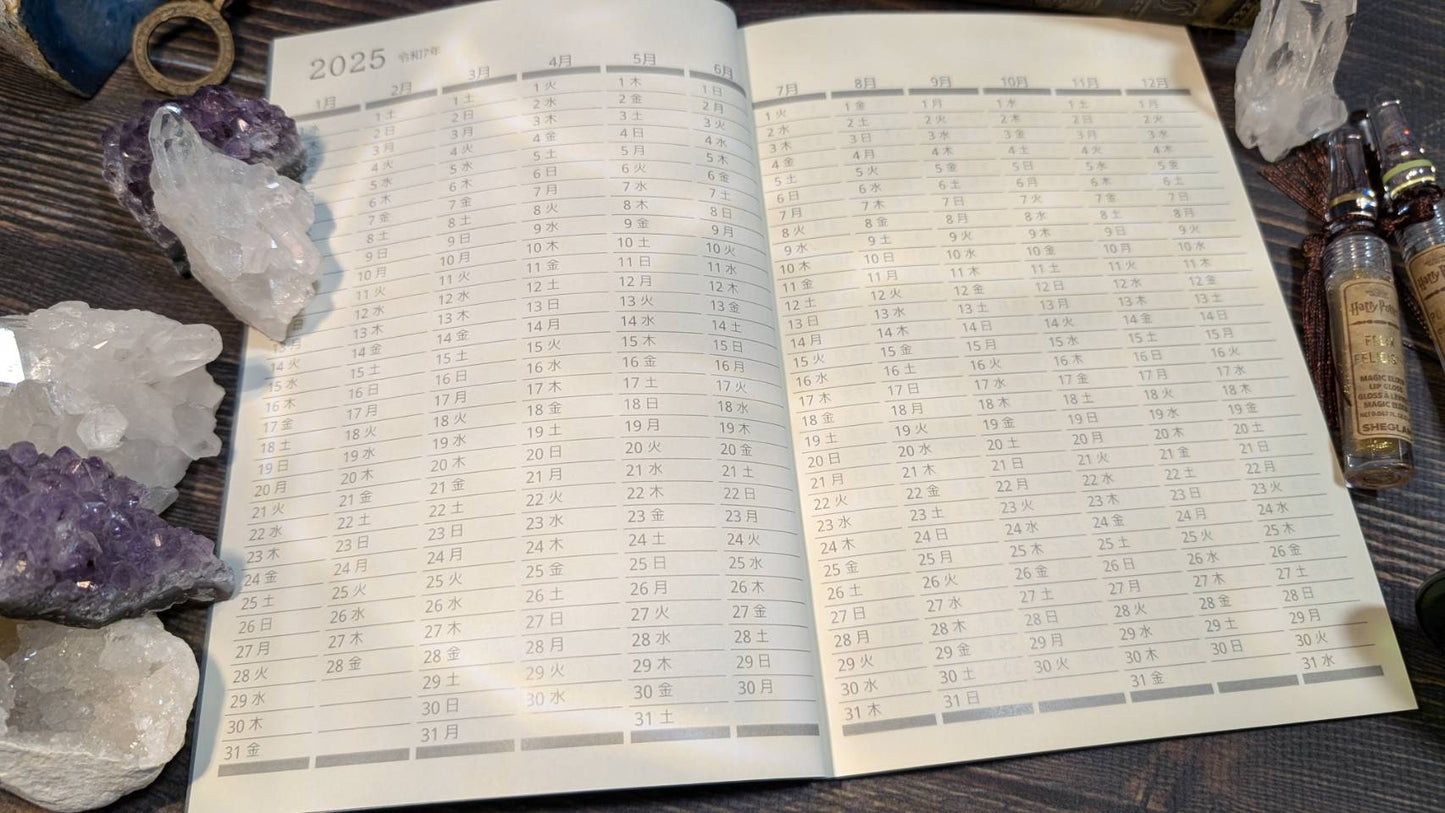 2025 令和7年
1月 2月 3月 4月 5月 6月
1 土 1 土 1 火 1 木 1 日
2 日 2 日 2 水 2 金 2 月
3 月 3 月 3 木 3 土 3 火
4 火 4 火 4 金 4 日 4 水
5 水 5 水 5 土 5 月 5 木
6 木 6 木 6 日 6 火 6 金
7 金 7 金 7 月 7 水 7 土
8 土 8 土 8 火 8 木 8 日
9 日 9 日 9 水 9 金 9 月
10 月 10 月 10 木 10 土 10 火
11 火 11 火 11 金 11 日 11 水
12 水 12 水 12 土 12 月 12 木
13 木 13 木 13 日 13 火 13 金
14 火 14 金 14 金 14 月 14 水 14 土
15 水 15 土 15 土 15 火 15 木 15 日
16 木 16 日 16 日 16 水 16 金 16 月
17 金 17 月 17 月 17 木 17 土 17 火
18 土 18 火 18 火 18 金 18 日 18 水
19 日 19 水 19 水 19 土 19 月 19 木
20 月 20 木 20 木 20 日 20 火 20 金
21 火 21 金 21 金 21 月 21 水 21 土
22 水 22 土 22 土 22 火 22 木 22 日
23 木 23 日 23 日 23 水 23 金 23 月
24 金 24 月 24 月 24 木 24 土 24 火
25 土 25 火 25 火 25 金 25 日 25 水
26 日 26 水 26 水 26 土 26 月 26 木
27 月 27 木 27 木 27 日 27 火 27 金
28 火 28 金 28 金 28 月 28 水 28 土
29 水 29 土 29 火 29 木 29 日
30 木 30 日 30 水 30 金 30 月
31 金 31 月 31 土
7月 8月 9月 10月 11月 12月
1 火 1 金 1 月 1 水 1 土 1 月
2 水 2 土 2 火 2 木 2 日 2 火
3 木 3 日 3 水 3 金 3 月 3 水
4 金 4 月 4 木 4 土 4 火 4 木
5 土 5 火 5 金 5 日 5 水 5 金
6 日 6 水 6 土 6 月 6 木 6 土
7 月 7 木 7 日 7 火 7 金 7 日
8 火 8 金 8 月 8 水 8 土 8 月
9 水 9 土 9 火 9 木 9 日 9 火
10 木 10 日 10 水 10 金 10 月 10 水
11 金 11 月 11 木 11 土 11 火 11 木
12 土 12 火 12 金 12 日 12 水 12 金
13 日 13 水 13 土 13 月 13 木 13 土
14 月 14 木 14 日 14 火 14 金 14 日
15 火 15 金 15 月 15 水 15 土 15 月
16 水 16 土 16 火 16 木 16 日 16 火
17 木 17 日 17 水 17 金 17 月 17 水
18 金 18 月 18 木 18 土 18 火 18 木
19 土 19 火 19 金 19 日 19 水 19 金
20 日 20 水 20 土 20 月 20 木 20 土
21 月 21 木 21 日 21 火 21 金 21 日
22 火 22 金 22 月 22 水 22 土 22 月
23 水 23 土 23 火 23 木 23 日 23 火
24 木 24 日 24 水 24 金 24 月 24 水
25 金 25 月 25 木 25 土 25 火 25 木
26 土 26 火 26 金 26 日 26 水 26 金
27 日 27 水 27 土 27 月 27 木 27 土
28 月 28 木 28 日 28 火 28 金 28 日
29 火 29 金 29 月 29 水 29 土 29 月
30 水 30 土 30 火 30 木 30 日 30 火
31 木 31 日 31 金 31 水
Harry Potter
MAGIC ELIXIR
LIP GLOSS
MAGIC
SHEGLAM